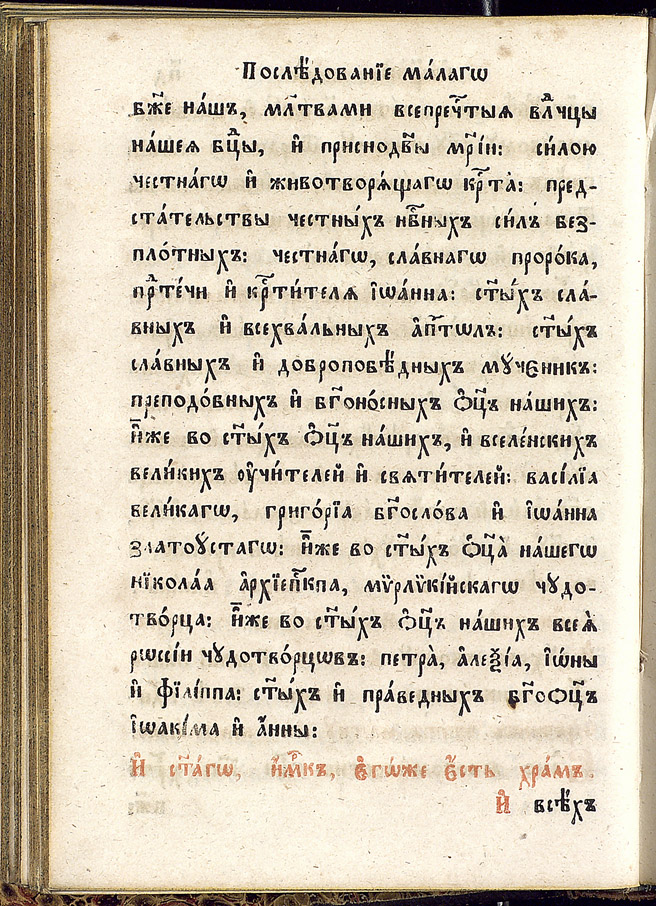 Послѣ́дованїе ма́лагѡ
бж҃е на́шъ, мл҃твами всепречⷭ҇тыѧ влⷣчцы
на́шеѧ бцⷣы, и҆ приснодв҃ы мр҃їи: си́лою
честна́гѡ и҆ животворѧ́щагѡ крⷭ҇та̀: пред-
ста́тельствы честны́хъ нбⷭ҇ныхъ си́лъ без-
пло́тныхъ: честна́гѡ, сла́внагѡ проро́ка,
прⷣте́чи и҆ крⷭ҇ти́телѧ і҆ѡа́нна: ст҃ы́хъ сла́-
вныхъ и҆ всехва́льныхъ а҆пⷭ҇тѡлъ: ст҃ы́хъ
сла́вныхъ и҆ добропобѣ́дныхъ мꙋ́чєникъ:
преподо́бныхъ и҆ бг҃оно́сныхъ ѻ҆ц҃ъ на́шихъ:
и҆̀же во ст҃ы́хъ ѻ҆ц҃ъ на́шихъ, и҆ вселе́нскихъ
вели́кихъ оу҆чи́телей и҆ свѧти́телей: васі́лїа
вели́кагѡ, григо́рїа бг҃осло́ва и҆ і҆ѡа́нна
златоꙋ́стагѡ: и҆̀же во ст҃ы́хъ ѻ҆ц҃а̀ на́шегѡ
нїкола́а а҆рхїепⷭ҇кпа, мѵрлѷкі́йскагѡ чꙋдо-
тво́рца: и҆̀же во ст҃ы́хъ ѻ҆ц҃ъ на́шихъ всеѧ̀
рѡссі́и чꙋдотво́рцѡвъ: петра̀, а҆леѯі́а, і҆ѡ́ны
и҆ фїлі́ппа: ст҃ы́хъ и҆ пра́ведныхъ бг҃оѻц҃ъ
і҆ѡакі́ма и҆ а҆́нны:
И҆ ст҃а́гѡ, и҆́мⷬ҇къ, є҆гѡ́же є҆́сть хра́мъ.
И҆ всѣ́хъ